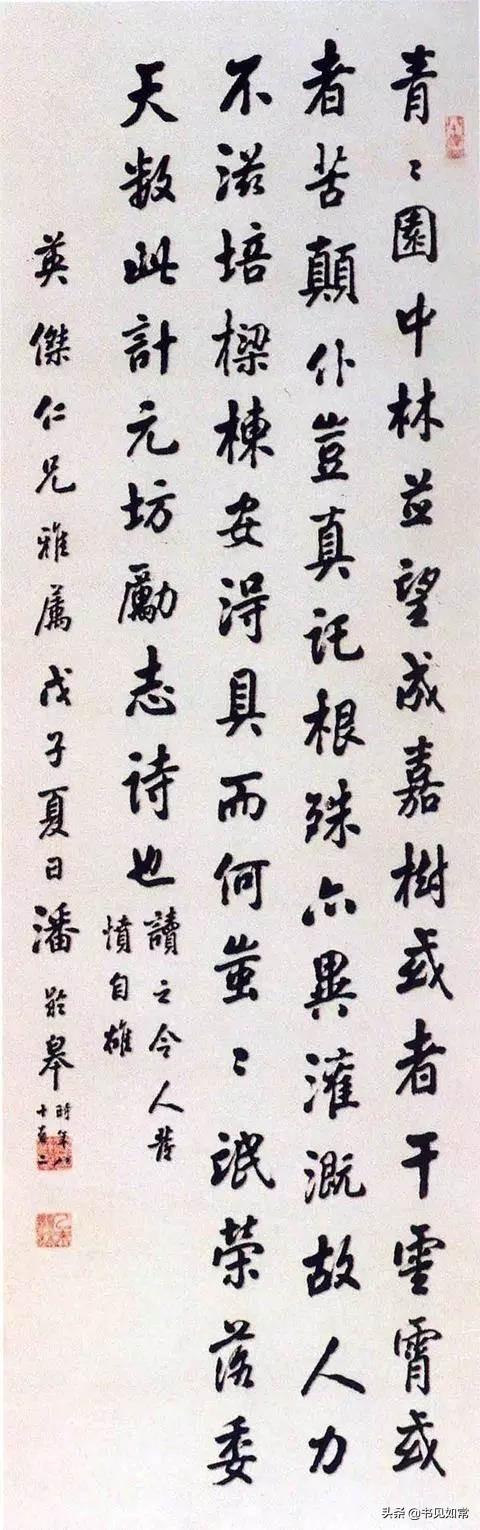 青〻園中林並望成嘉樹或者干雲霄或
者苦顛仆豈真託根殊亦異灌溉故人力
不滋培樑棟安得具而何蚩〻氓榮落委
天數此計元坊勵志詩也
讀之令人發
憤自雄
英傑仁兄雅屬戊子夏日潘齡皋
時年八
十有二
头条 @书见如常